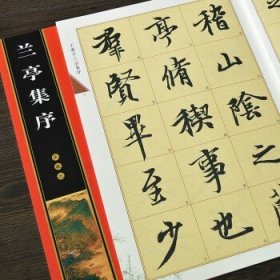 兰亭集序
稽山陰之蘭
亭脩稧事也
羣賢畢至少